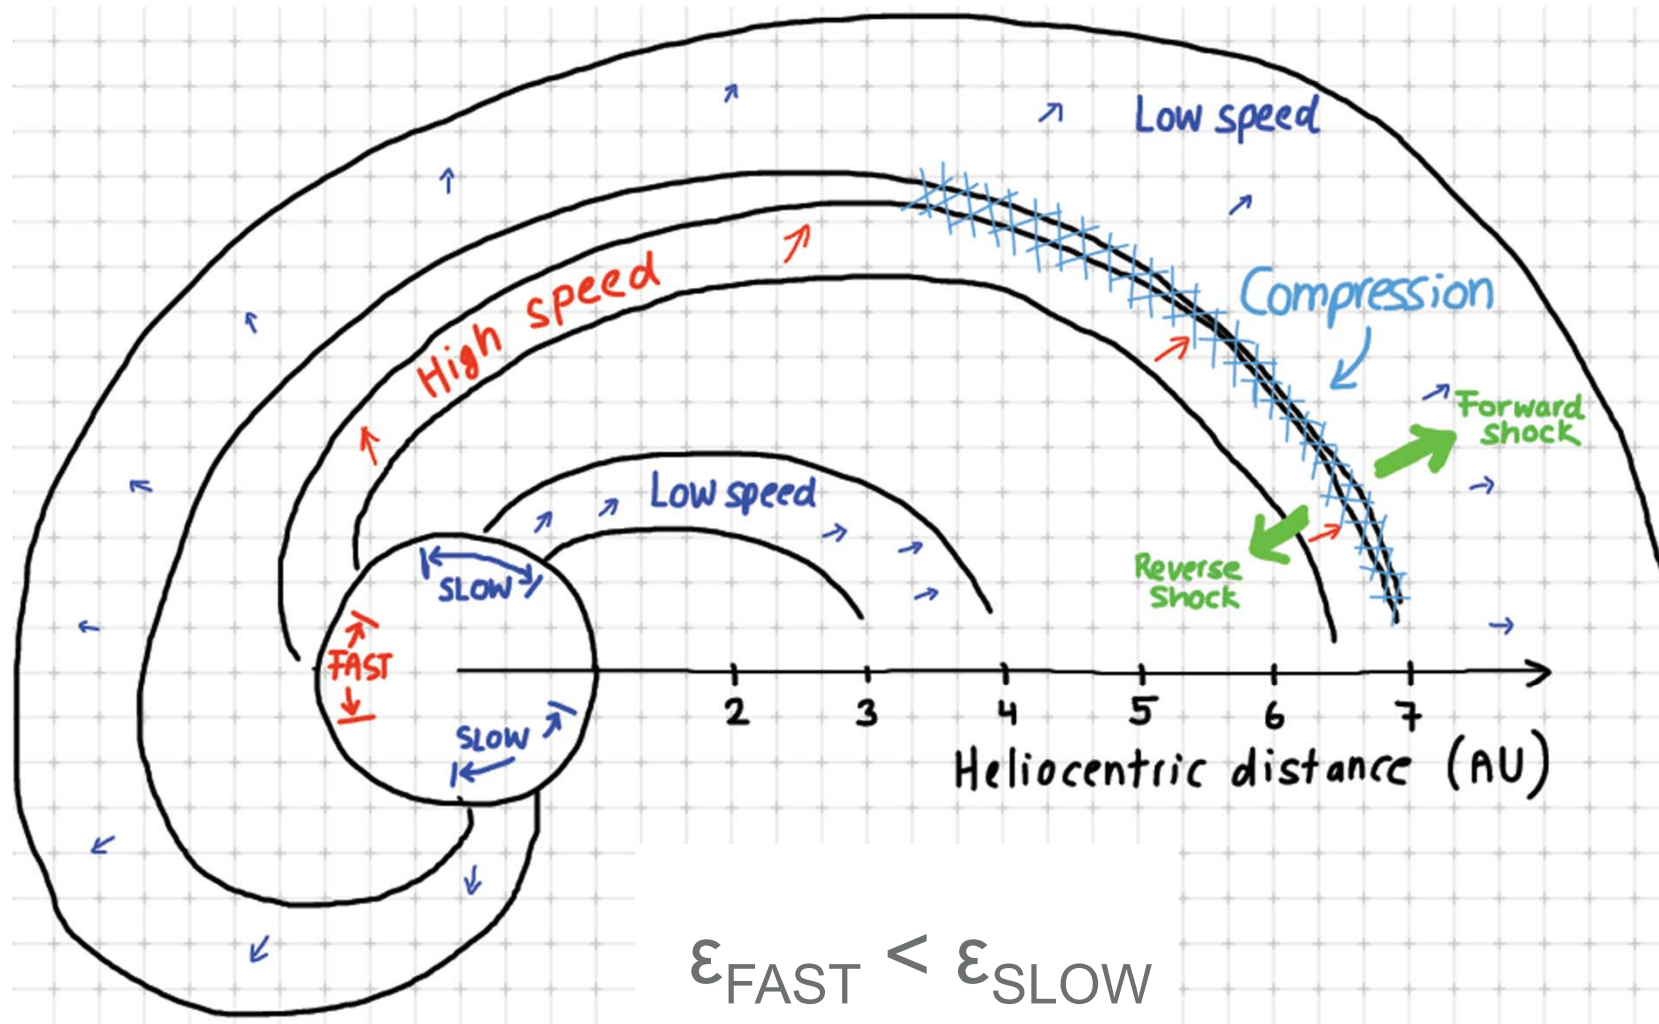 Low speed
High speed
Compression
Forward
shock
Low speed
Reverse
Shock
SLOW
FAST
SLOW
2 3 4 5 6 7
Heliocentric distance (AU)
εFAST < εSLOW